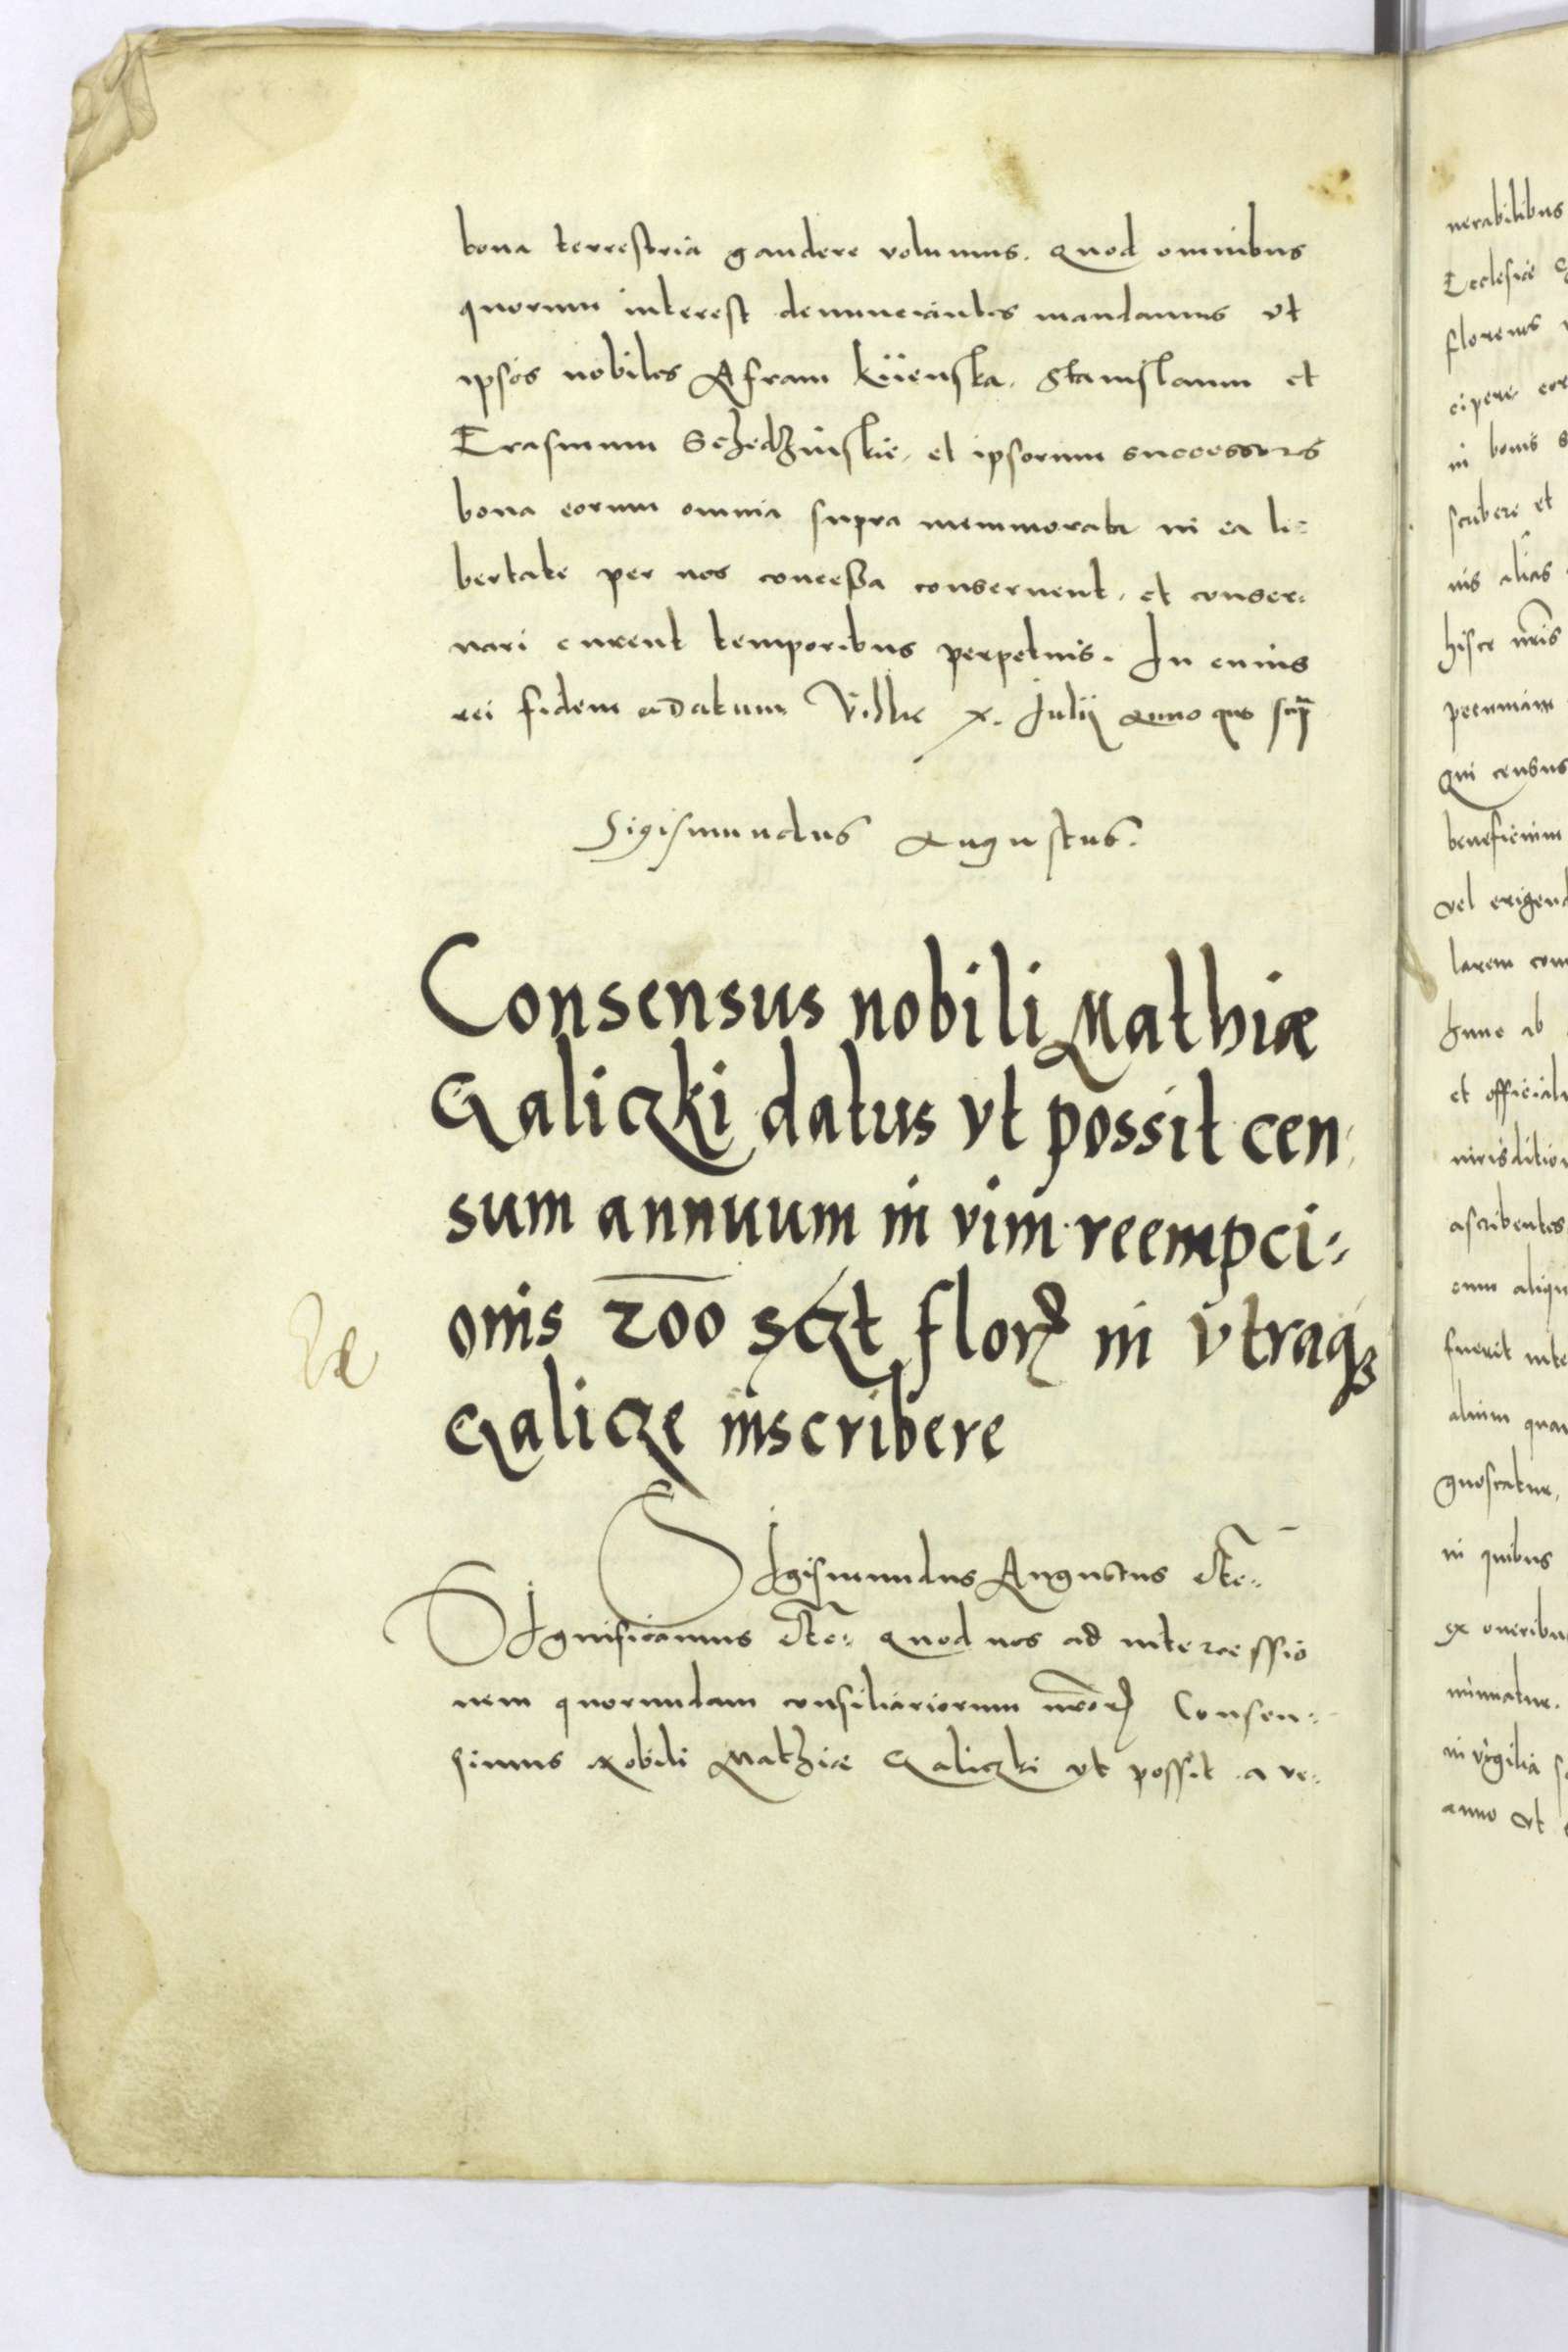 bona terrestria gaudere volumus. quod omnibus
quorum interest denunciantes mandamus vt
ipsos nobiles Afram Kijenska, Stanislaum et
Erasmum Schedzinskie, et ipsorum successores
bona eorum omnia supra memmorata in ea li-
bertate per nos concessa conservent, et conser-
vari curent temporibus perpetuis. In cuius
rei fidem datum Vilnæ x. Julij Anno quo supra
Sigismundus Augustus.
Consensus nobili Mathiæ
Galiczki datus vt possit cen-
sum annuum in vim reempci-
onis 200 flor in vtraqz
Galicze inscribere
SIgismundus Augustus etc.
SIgnificamus etc. quod nos ad intercessio
nem quorundam consiliariorum nror Consen-
simus Nobili Mathiæ Galiczki vt possit a ve-
nerabilibus
Ecclesiæ
florenos
cipere
in bonis
scribere et
nis alias
hisce nris
pecuniam
qui census
beneficium
vel erigend
larem com
hunc ab
et official
iurisdition
ascribentes
cum aliqu
fuerit inte
alium quam
gnoscatur,
in quibus
ex oneribus
minuatur.
in vigilia
anno vt